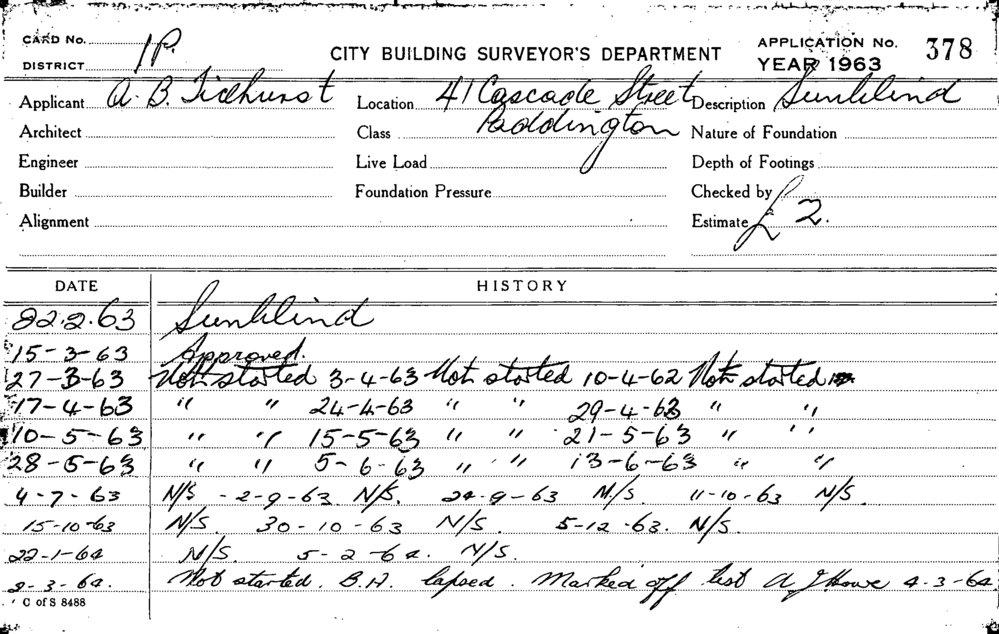 CARD No. 1P. CITY BUILDING SURVEYOR'S DEPARTMENT APPLICATION No. 378
DISTRICT YEAR 1963
Applicant A. B. Ticehurst Location 41 Cascade Street Description Sunblind
Architect Class Paddington Nature of Foundation
Engineer Live Load Depth of Footings
Builder Foundation Pressure Checked by
Alignment Estimate £ 2.
DATE HISTORY
22.2.63 Sunblind
15-3-63 Approved.
27-3-63 Not started 3-4-63 Not started 10-4-62 Not started
17-4-63 " " 24-4-63 " " 29-4-63 " "
10-5-63 " " 15-5-63 " " 21-5-63 " "
28-5-63 " " 5-6-63 " " 13-6-63 " "
4-7-63 N/S - 2-9-63 N/S. 24-9-63 N/S. 11-10-63 N/S.
15-10-63 N/S. 30-10-63 N/S. 5-12-63. N/S.
22-1-64 N/S. 5-2-64. N/S.
2-3-64. Not started. B.A. lapsed. Marked off list A J Howe 4-3-64
C of S 8488